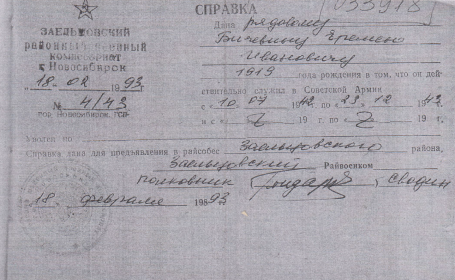 СПРАВКА
[033918]
ЗАЕЛЬЦОВСКИЙ
районный военный
комиссариат
г. Новосибирск
18.02 1993г.
№ 4/43
гор Новосибирск
Дана рядовому
Бичевину Еремею
Ивановичу
1919 года рождения в том, что он дей-
ствительно служил в Советской Армии
с 10.07 1942 по 23.12 1943
и с Z 19 г. по Z 19 г.
Уволен по
Справка дана для предъявления в райсобес Заельцовского района,
Заельцовский Райвоенком
полковник Гондарев г Сводин
18 февраля 198 93 г.